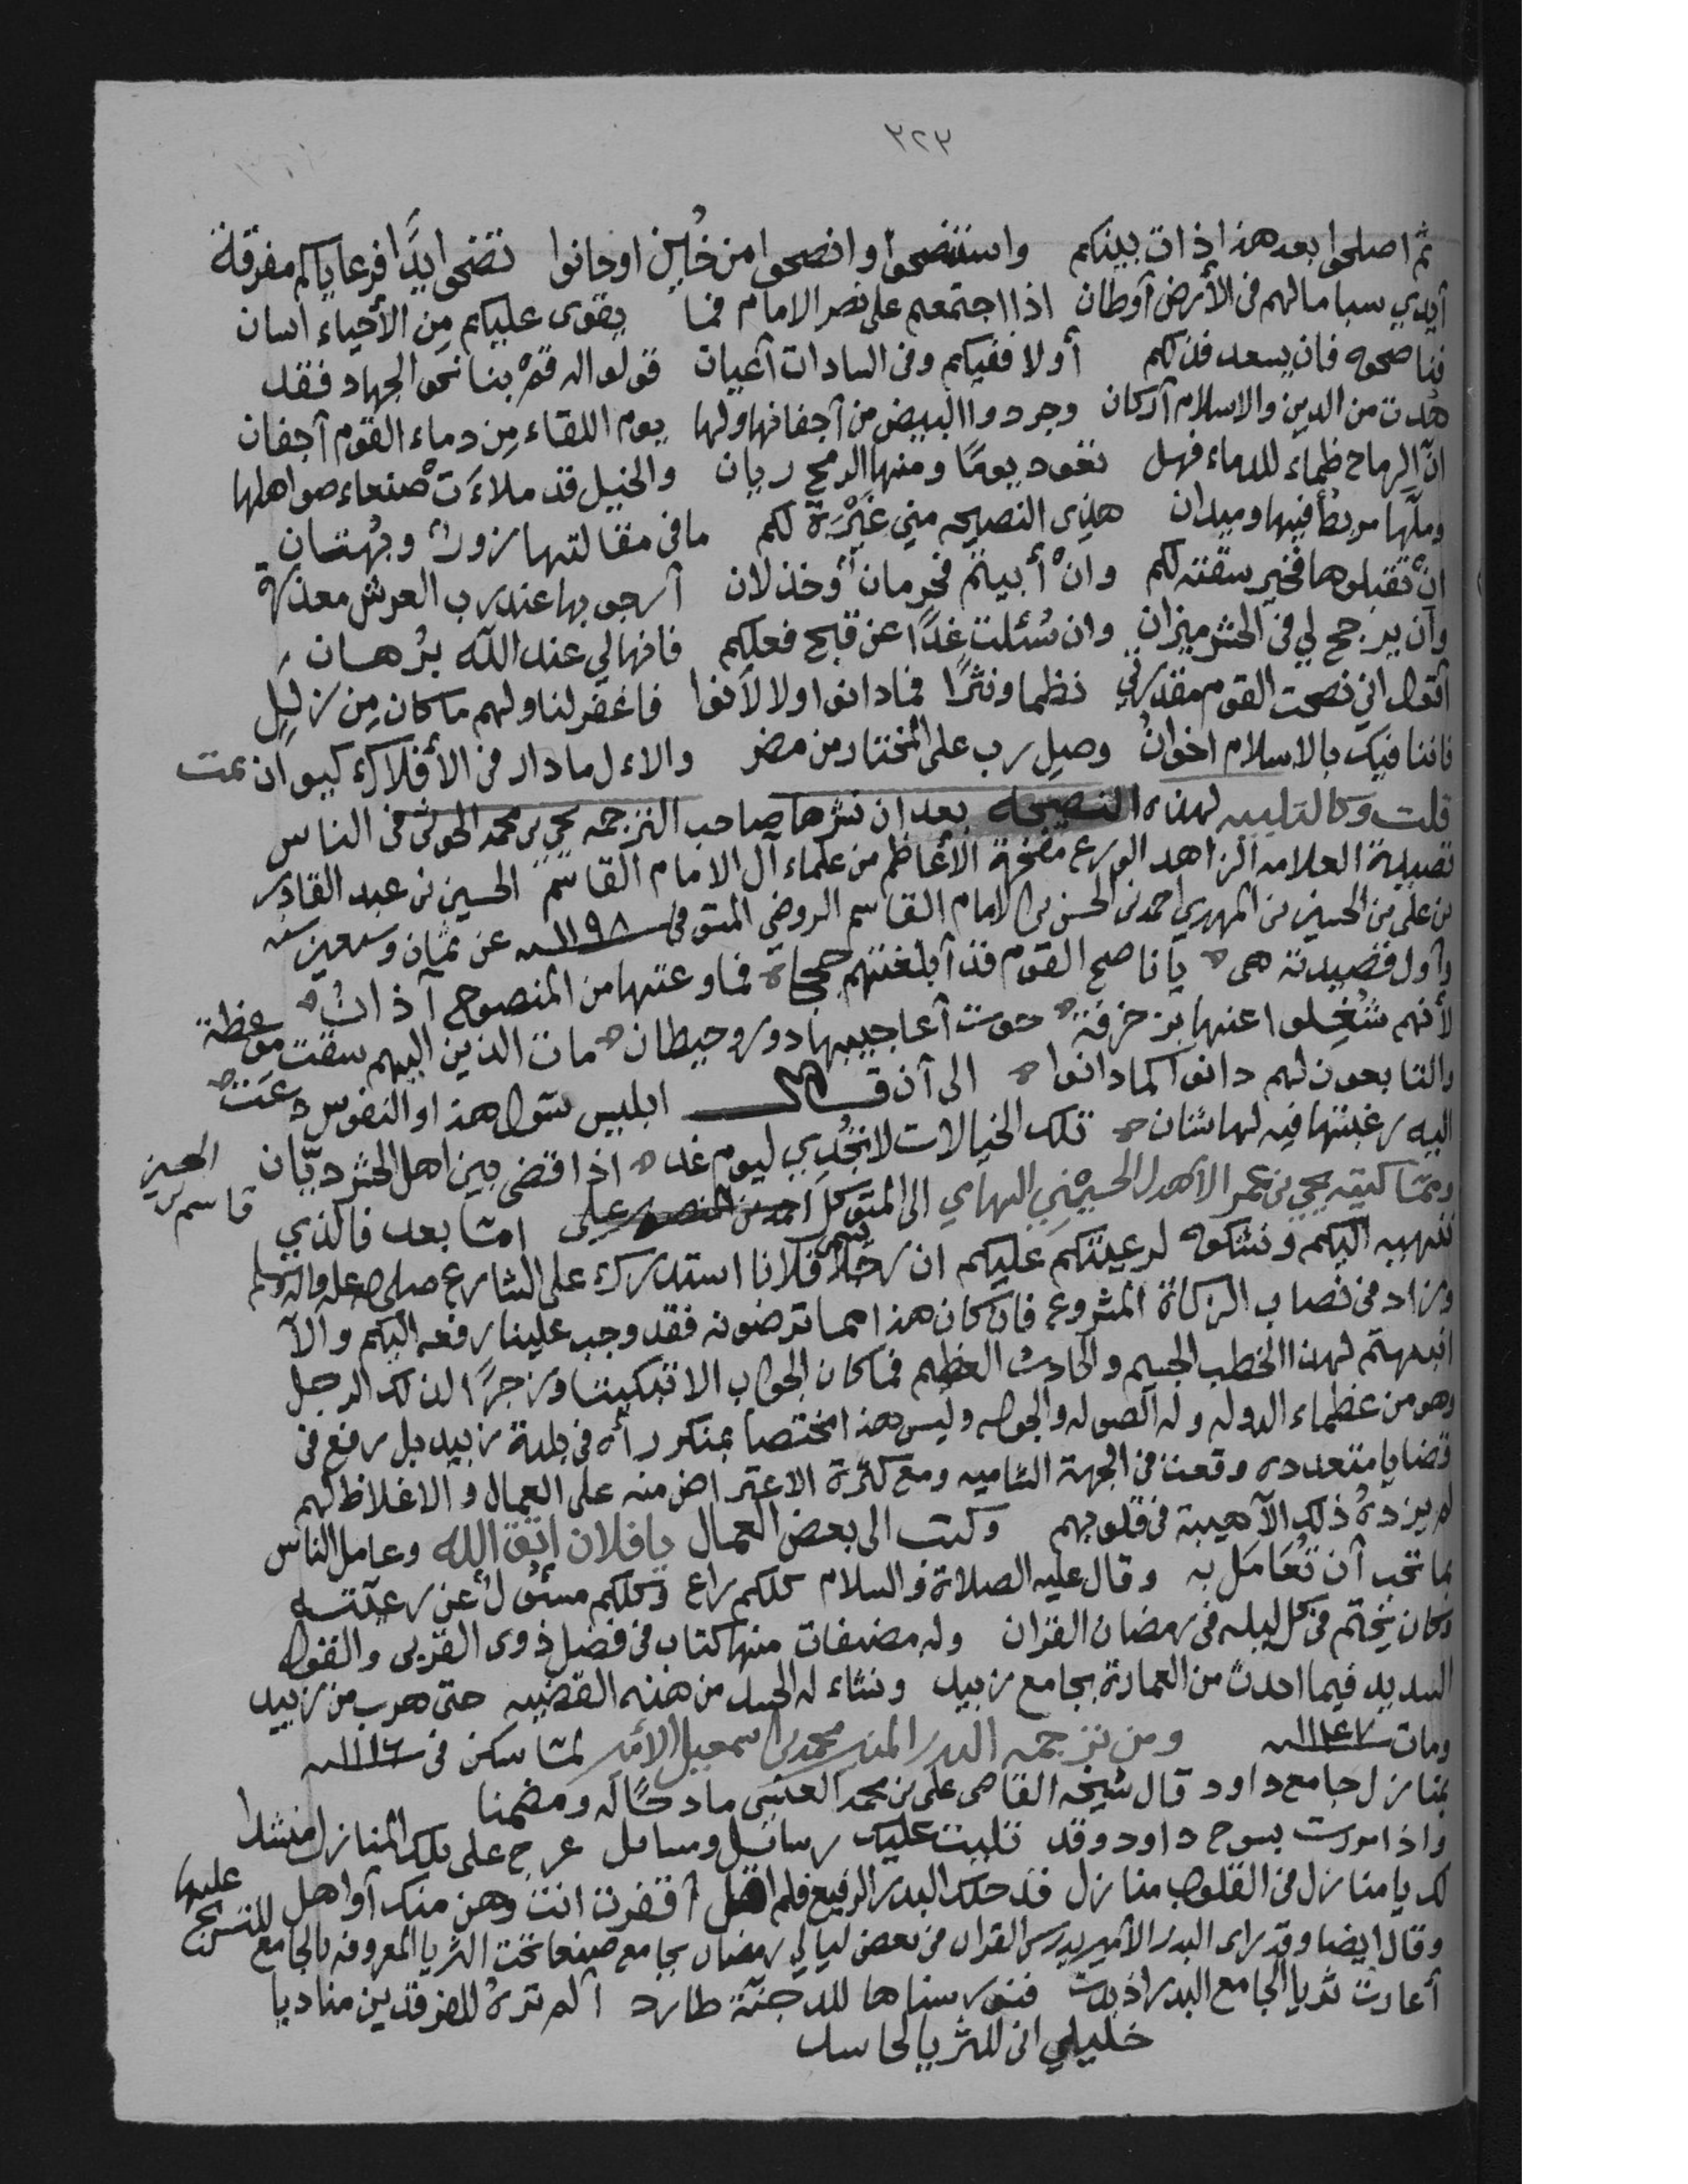 ٣٢٣
ثم اصلحوا بعد هذا ذات بينكم واستنصحوا وانصحوا من خُاين اوخانوا تضحى ابدًا فرعاياكم مفرقة
أيدي سبا مالهم في الأرض أوطان اذا اجتمعتم على نصر الامام فما يقوى عليكم مِن الأحياء انسان
فناصحوه فان يسعد فذلكم أولا ففيكم وفي السادات أعيان قولوا له قُمْ بنا نحو الجهاد فقد
هُدّت من الدين والاسلام أركان وجردوا البيض من أجفانها ولها يوم اللقاء مِن دماء القوم أجفان
انّ الرماح ظماء للدماء فهل تعود يومًا ومنها الرمح ريان والخيل قد ملاءَتْ صنعاء صواهلها
وملّها مربطٌ فيها وميدان هذي النصيحه مني عَبْرَة لكم ما في مقالتها زورٌ وبُهتان
انْ تقبلوها فخير سقته لكم وانْ أبيتم فحرمان وخذلان أرجو بها عند رب العرش معذرة
وأن يرجح لي في الحشر ميزان وان سُئلت غدًا عن قبح فعلكم فانها لي عند الله بُرهان
أقول اني نصحت القوم مقدرتي نظما ونثرًا فما دانوا ولا لأنوا فاغفر لنا ولهم ما كان مِن زللٍ
فاننا فيك بالاسلام اخوانُ وصل رب على المختار من مضر والاءل ما دار في الأفلاك كيوان تمت
قلت وكالتلبيه لهذه النصيحه بعد ان نشرها صاحب الترجمه يحيى بن محمد الحوثي في الناس
قصيدة العلامه الزاهد الورع مفخرة الأعاظم من علماء آل الامام القاسم الحسين بن عبد القادر
بن علي بن الحسين بن المهدي احمد بن الحسن بن الامام القاسم الروضي المتوفى ١١٩٨ عن ثمان وسبعين سنه
وأول قصيدته هي يا ناصح القوم قد أبلغتهم حججا فما وعتها من المنصوح آذانُ
لأنهم شُغِلوا عنها بزخرفة حوت أعاجيبها دور وحيطان مات الذين اليهم سقت موعظة
والتابعون لهم دانوا كما دانوا الى أن قال ابليس سَوّل هذا والنفوس دعَت
اليه رغبتها فيه لها شان تلك الخيالات لا تُجْدي ليوم غد اذا قضى بين اهل الحشر ديّان
ومما كتبه يحيى بن عمر الأهدل الحسيني التهامي الى المتوكل احمد بن المنصور علي الحسين قاسم بن امّا بعد فالذي
ننهيه اليكم ونشكوه لرعيتكم عليكم ان رجلا يسمى فلانا استدرك على الشارع صلى الله عليه واله وسلم
وزاد في نصاب الزكاة المشروع فان كان هذا مما ترضونه فقد وجب علينا رفعه اليكم والآ
انبهتم لهذا الخطب الجسيم والحادث العظيم فما كان الجواب الا تبكيتا وزجرًا لذلك الرجل
وهو من عظماء الدوله وله الصوله والجوله وليس هذا مختصا بمنكر رأه في بلدة زبيد بل رفع في
قضايا متعدده وقعت في الجهة الشاميه ومع كثرة الاعتراض منه على العمال والاغلاظ لهم
لم يزده ذلك الآ هيبة في قلوبهم وكتب الى بعض العمال يا فلان اتق الله وعامل الناس
بما تحب أن تُعَامَل به وقال عليه الصلاة والسلام كلكم راع وكلكم مسئول عن رعيّته
وكان يختم في كل ليله في رمضان القران وله مصنفات منها كتاب في فضل ذوى القربى والقول
السديد فيما احدث من العمارة بجامع زبيد ونشاء له الحسد من هذه القضيه حتى هرب من زبيد
ومات ١١٤٧ ومن ترجمه البدر المنير محمد بن اسمعيل الأمير لمّا سكن في ١١١٦
بمنازل جامع داود قال شيخه القاضي علي بن محمد العنسي مادحًا له ومضمنا
واذا مررت بسوح داود وقد تليت عليك رسائل ومسائل عرج على تلك المنازل منشدا
لك يا منازل في القلوب منازل قد حلك البدر الرفيع فلم اقل أقفرت انت وهن منك أواهل
وقال ايضا وقد راى البدر الأمير يدرس القران في بعض ليالي رمضان بجامع صنعا تحت الثريا المعروفه بالجامع للتسريج عليها
أعارت ثريا الجامع البدر اذ بدت فنور سناها للدجنّة طارد ألم تره للفرقدين مناديا
خليلي انى للثريا لحاسد